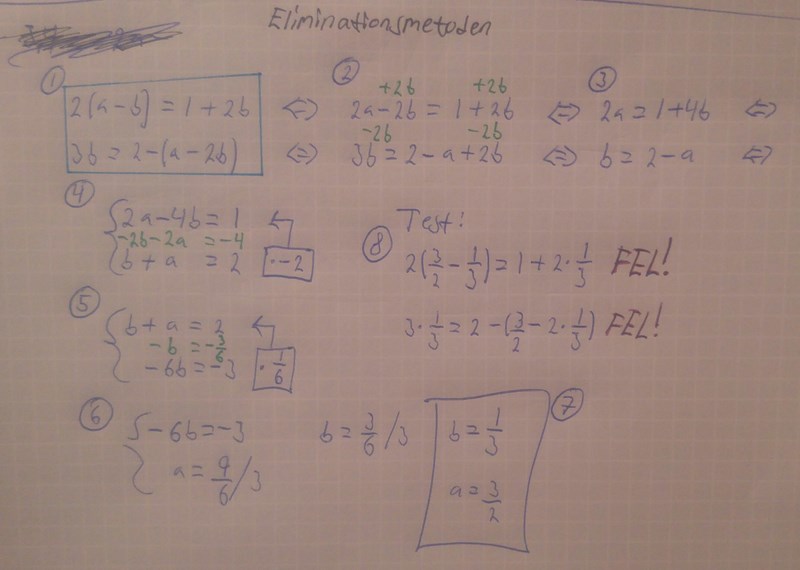 Eliminationsmetoden
① 2(a-b) = 1 + 2b <=>
3b = 2-(a-2b) <=>
② +2b +2b
2a-2b = 1+2b <=>
-2b -2b
3b = 2-a+2b <=>
③ 2a = 1+4b <=>
b = 2-a <=>
④ 2a-4b = 1
-2b-2a = -4
b+a = 2 ·-2
⑤ b+a = 2
-b = -3/6
-6b = -3 ·1/6
⑥ -6b = -3 b = 3/6 /3
a = 9/6 /3
⑦ b = 1/3
a = 3/2
Test!
⑧ 2(3/2 - 1/3) = 1 + 2·1/3 FEL!
3·1/3 = 2-(3/2 - 2·1/3) FEL!